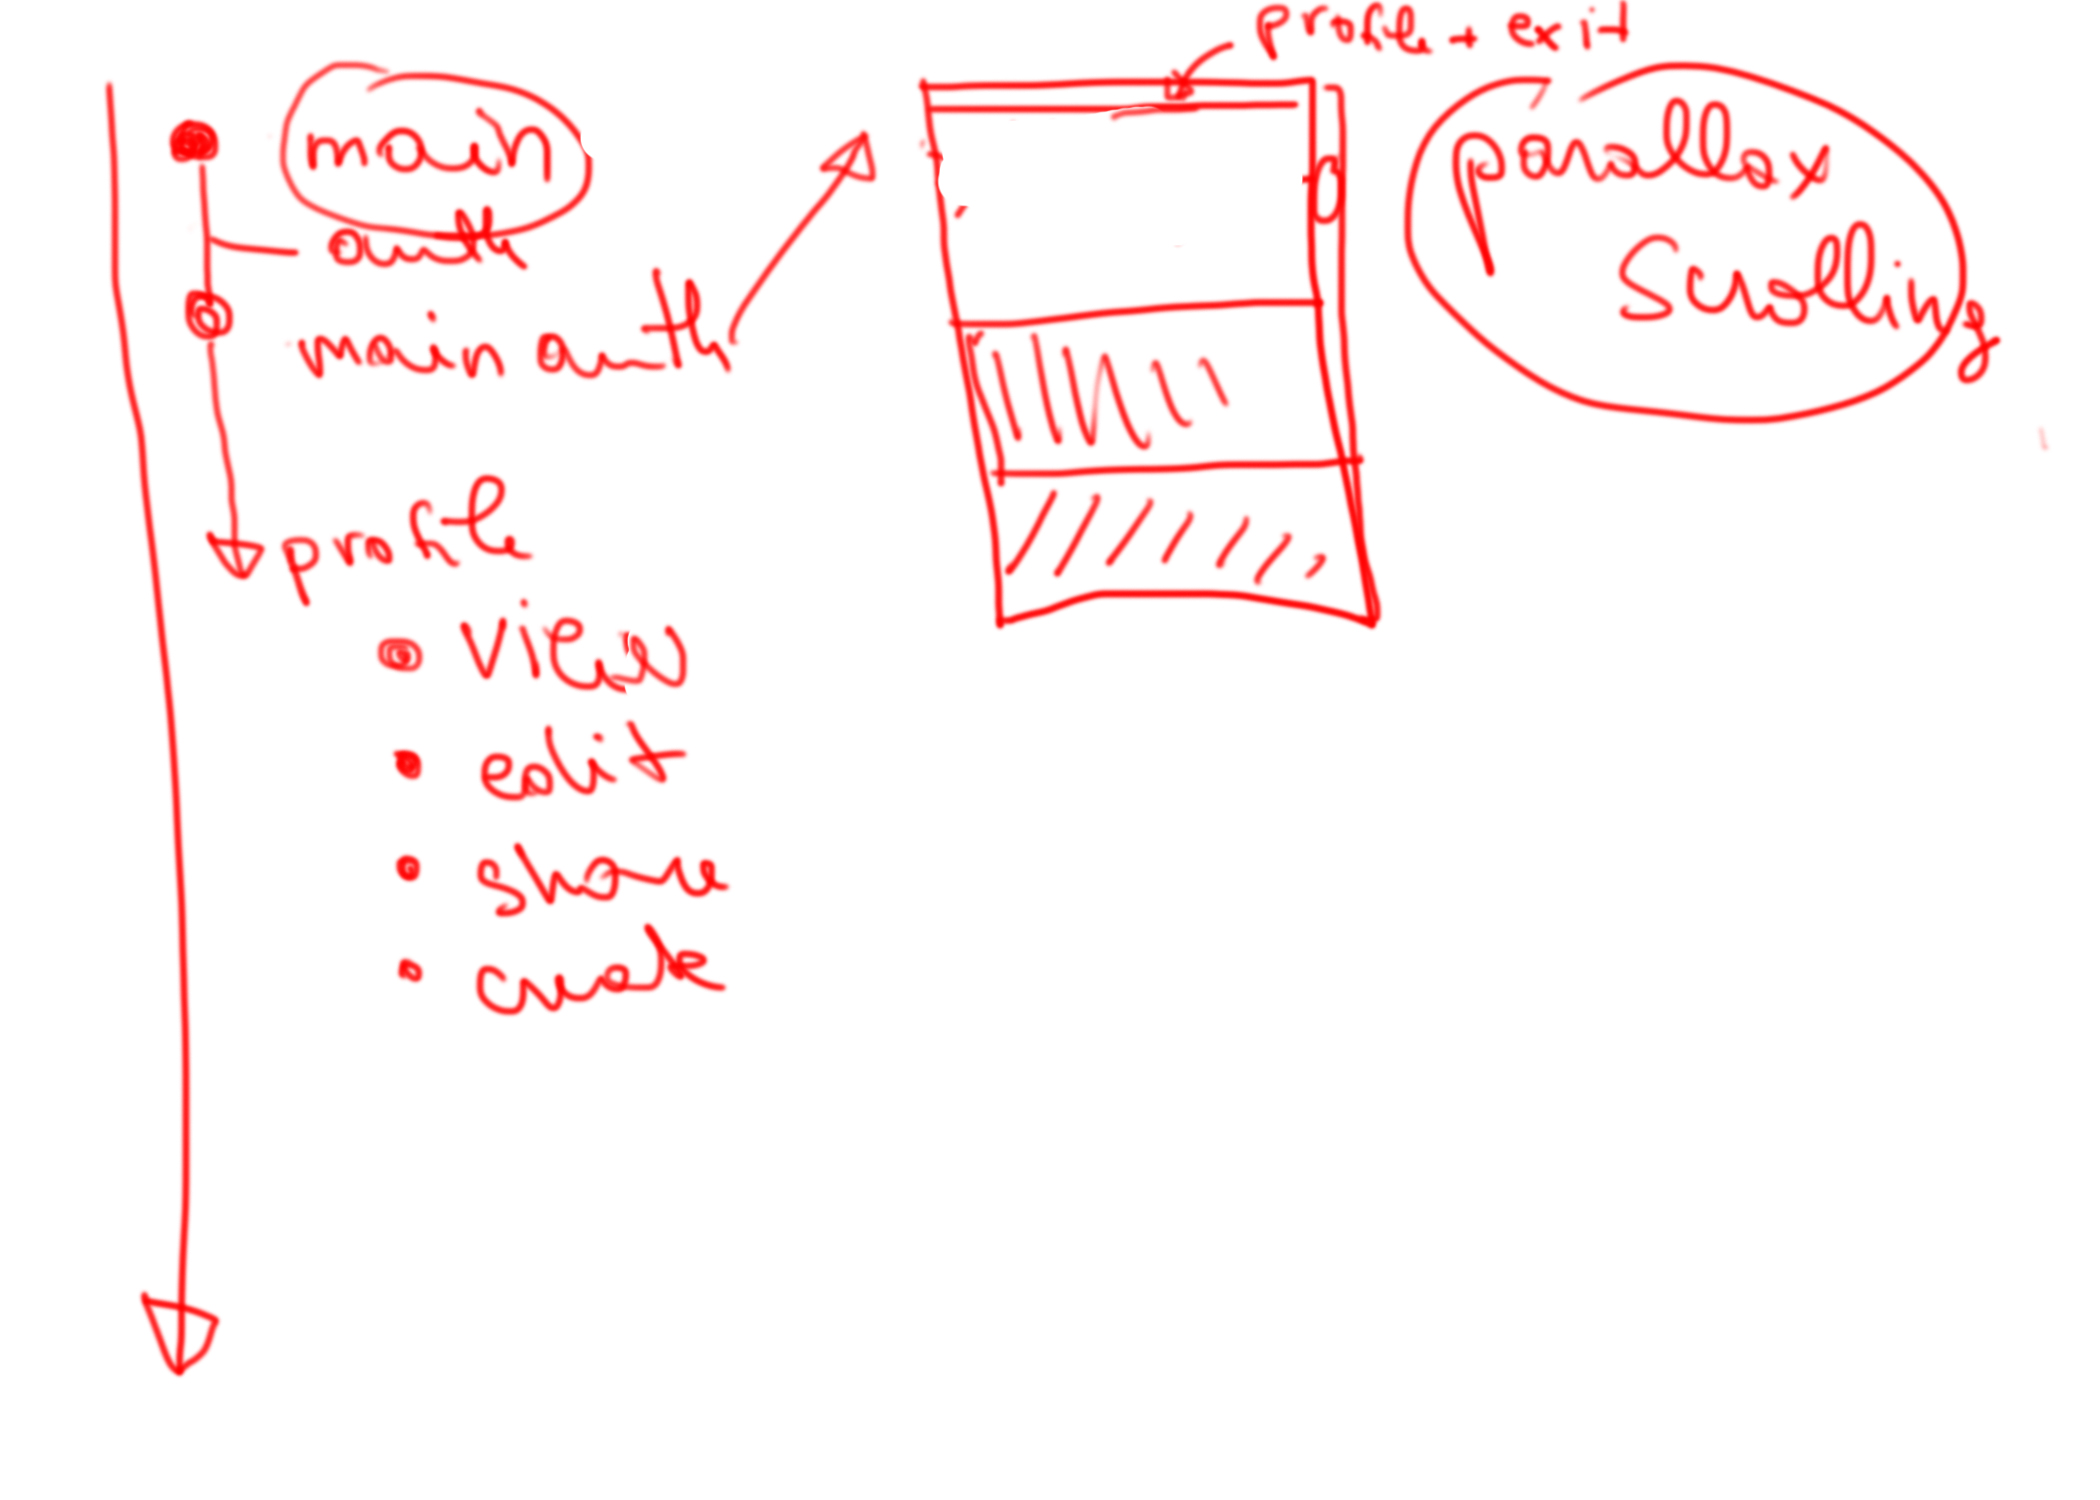 main
auth
main auth
profile
view
edit
share
create
profile + exit
parallax
scrolling